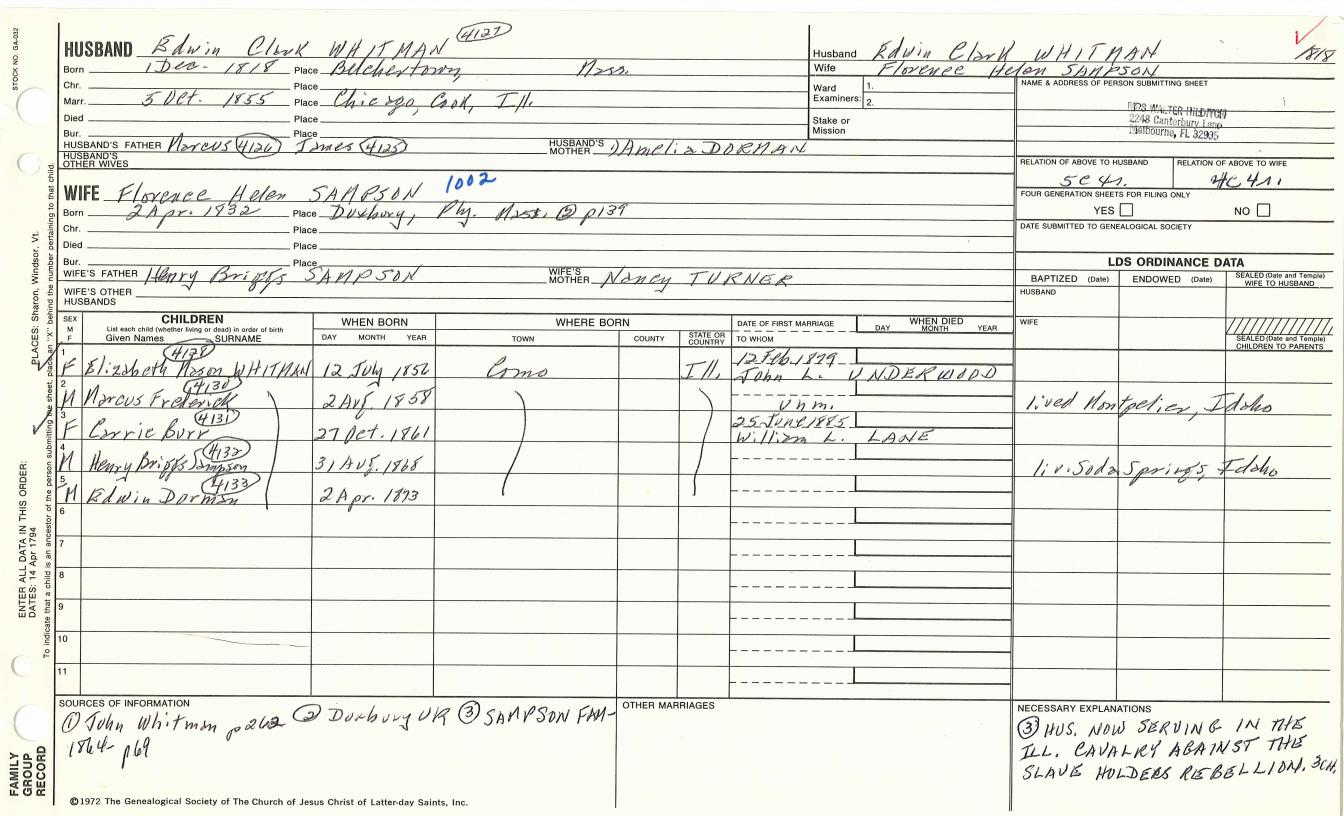 STOCK NO. GA-032
HUSBAND Edwin Clark WHITMAN 4127
Born 1 Dec. 1818 Place Belchertown, Mass.
Chr. Place
Marr. 5 Oct. 1855 Place Chicago, Cook, Ill.
Died Place
Bur. Place
HUSBAND'S FATHER Marcus 4126 James 4125 HUSBAND'S MOTHER Amelia DORMAN
HUSBAND'S OTHER WIVES
Husband Edwin Clark WHITMAN 1818
Wife Florence Helen SAMPSON
Ward Examiners: 1. 2.
Stake or Mission
NAME & ADDRESS OF PERSON SUBMITTING SHEET
MRS WALTER
2248 Canterbury Lane
Melbourne, FL 32935
RELATION OF ABOVE TO HUSBAND RELATION OF ABOVE TO WIFE
5C4r. 4C4r.
FOUR GENERATION SHEETS FOR FILING ONLY
YES NO
DATE SUBMITTED TO GENEALOGICAL SOCIETY
WIFE Florence Helen SAMPSON 1002
Born 2 Apr. 1832 Place Duxbury, Ply. Mass. ② p139
Chr. Place
Died Place
Bur. Place
WIFE'S FATHER Henry Briggs SAMPSON WIFE'S MOTHER Nancy TURNER
WIFE'S OTHER HUSBANDS
LDS ORDINANCE DATA
BAPTIZED (Date) ENDOWED (Date) SEALED (Date and Temple) WIFE TO HUSBAND
HUSBAND
WIFE
SEALED (Date and Temple) CHILDREN TO PARENTS
SEX M F CHILDREN List each child (whether living or dead) in order of birth Given Names SURNAME
WHEN BORN DAY MONTH YEAR
WHERE BORN TOWN COUNTY STATE OR COUNTRY
DATE OF FIRST MARRIAGE TO WHOM
WHEN DIED DAY MONTH YEAR
1 F Elizabeth Mason WHITMAN 4128 12 July 1856 Como Ill. 12 Feb. 1879 John L. UNDERWOOD
2 M Marcus Frederick 4130 2 Aug. 1858 unm. lived Montpelier, Idaho
3 F Carrie Burr 4131 27 Oct. 1861 25 June 1885 William L. LANE
4 M Henry Briggs Sampson 4132 31 Aug. 1868 liv. Soda Springs, Idaho
5 M Edwin Dorman 4133 2 Apr. 1873
6
7
8
9
10
11
SOURCES OF INFORMATION
① John Whitman p262 ② Duxbury VR ③ SAMPSON FAM-
1864- p69
OTHER MARRIAGES
NECESSARY EXPLANATIONS
③ HUS. NOW SERVING IN THE
ILL. CAVALRY AGAINST THE
SLAVE HOLDERS REBELLION. 3CH.
©1972 The Genealogical Society of The Church of Jesus Christ of Latter-day Saints, Inc.
FAMILY GROUP RECORD
ENTER ALL DATA IN THIS ORDER:
DATES: 14 Apr 1794
PLACES: Sharon, Windsor, Vt.
To indicate that a child is an ancestor of the person submitting the sheet, place an "X" behind the number pertaining to that child.